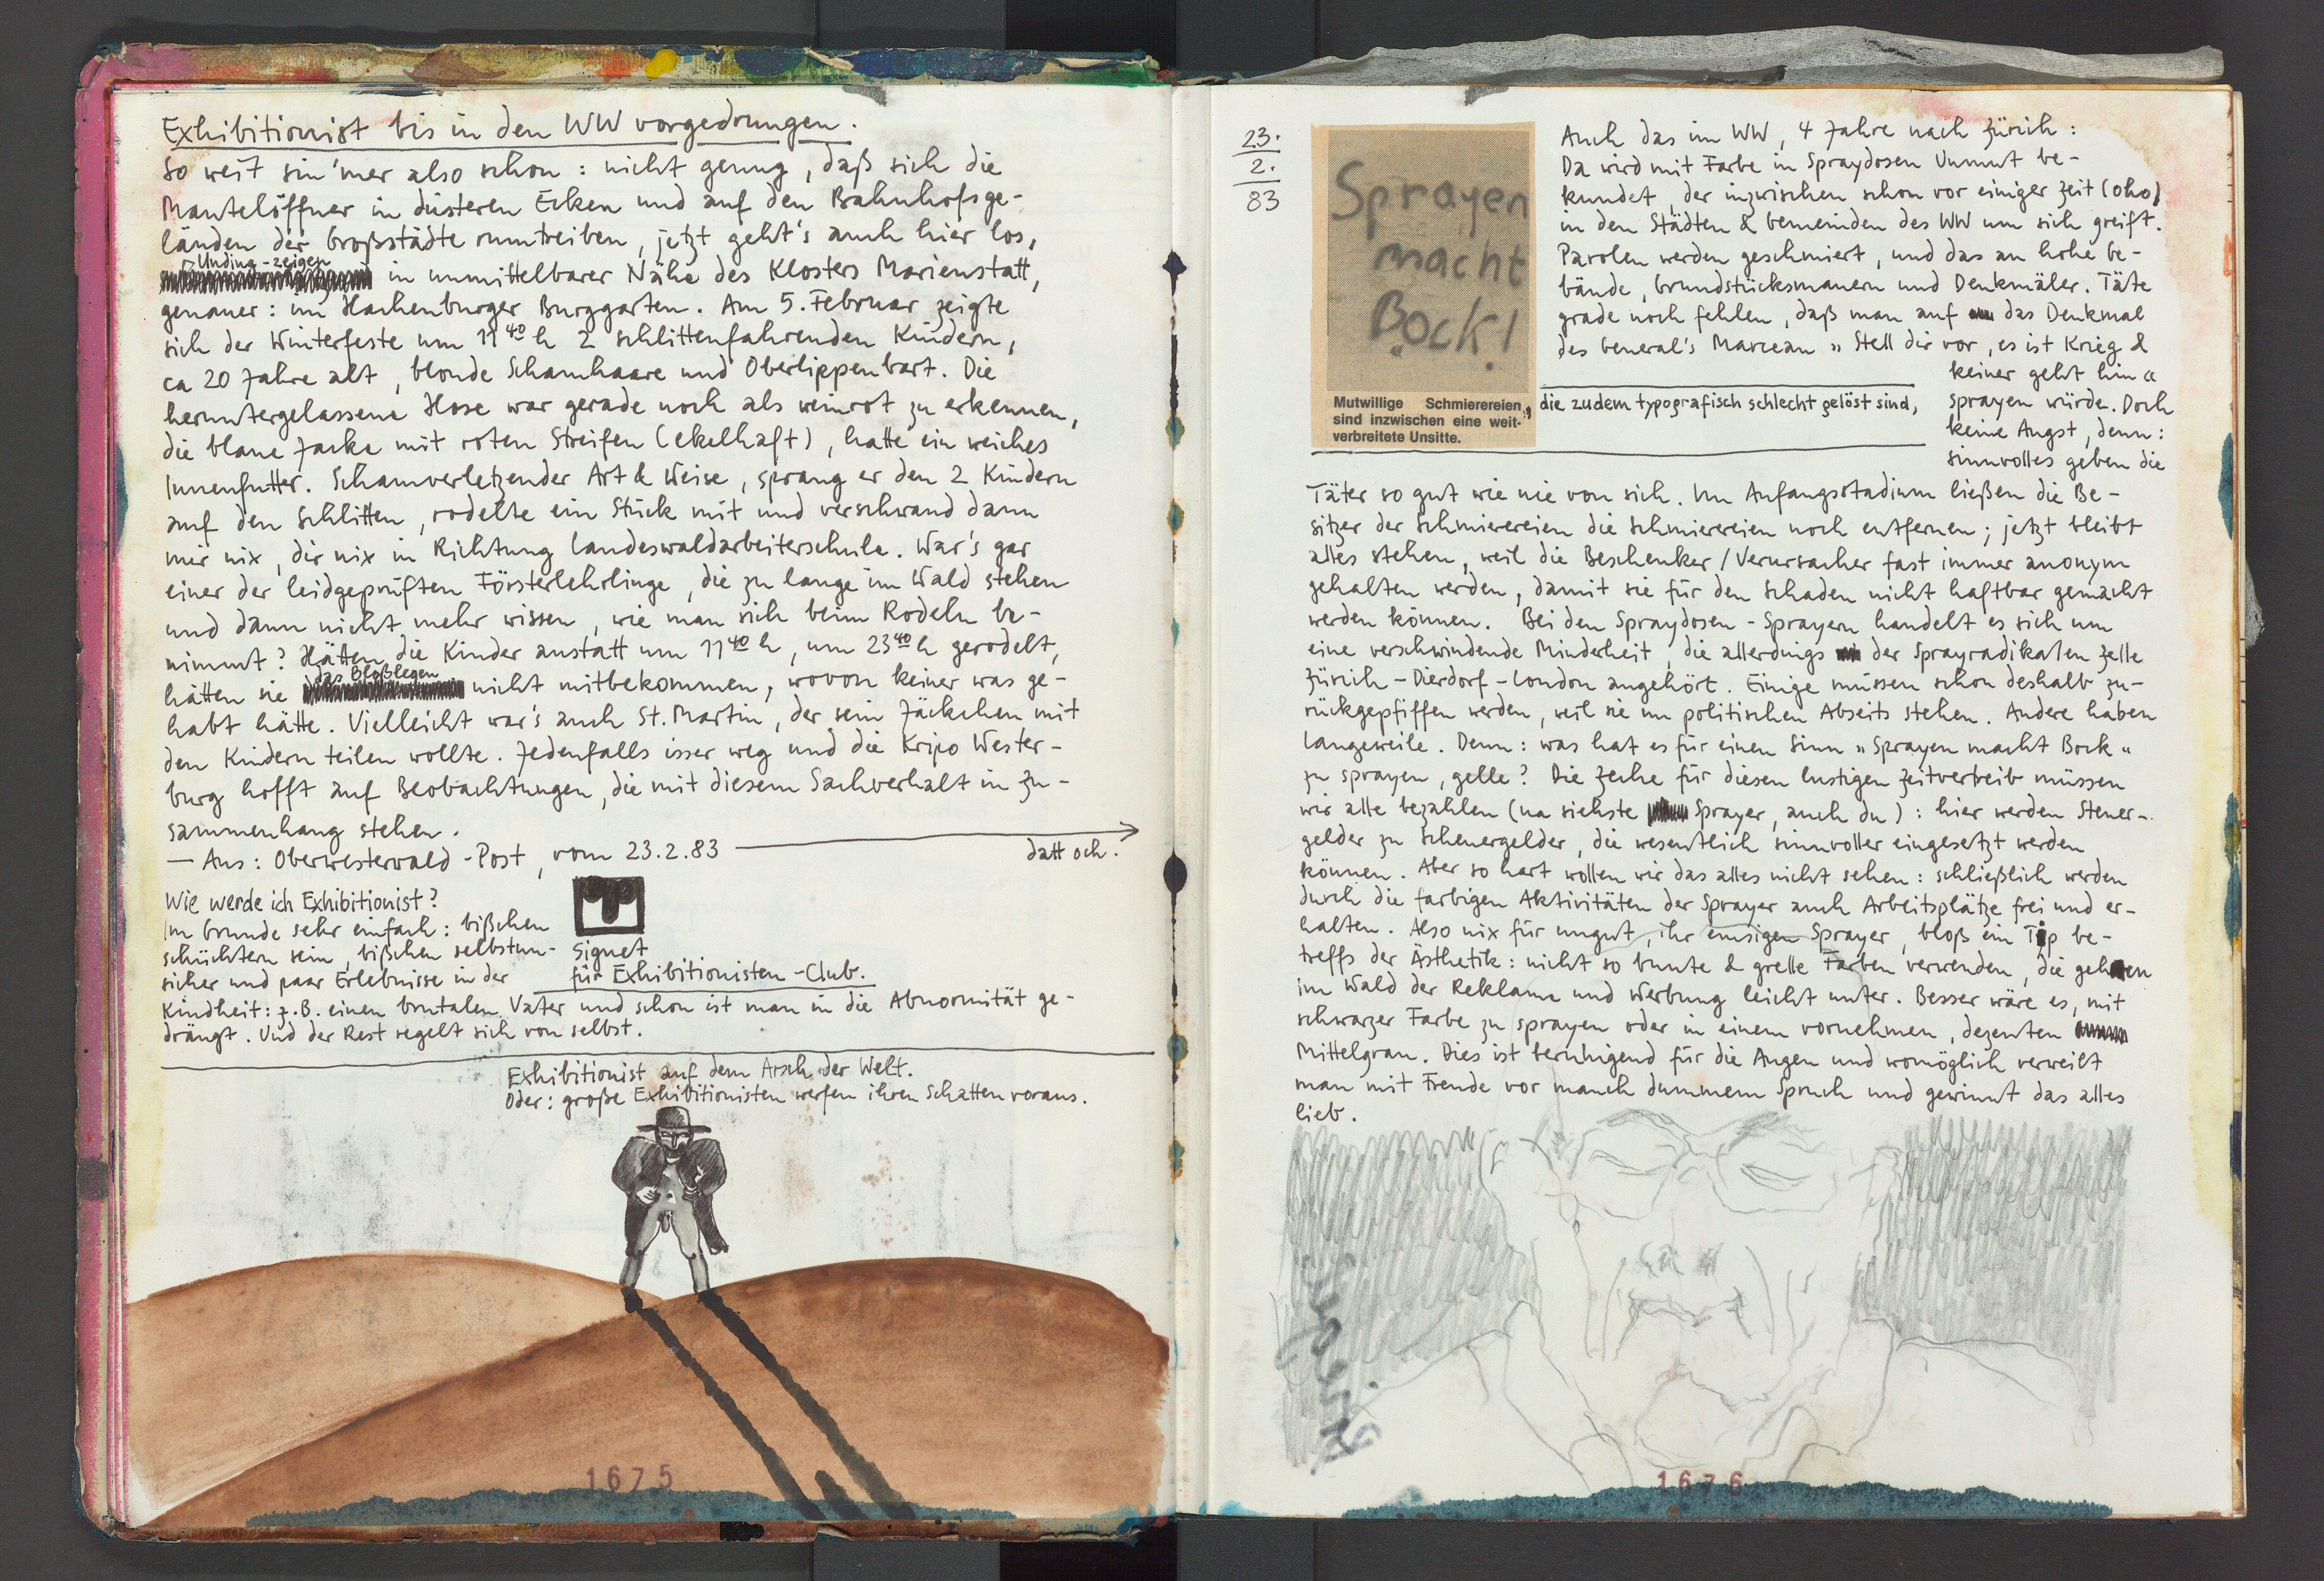 Exhibitionist bis in den WW vorgedrungen.
So weit sin'mer also schon: nicht genug, daß sich die
Mantelöffner in düsteren Ecken und auf den Bahnhofsge-
länden der Großstädte rumtreiben, jetzt geht's auch hier los,
Unding-zeigen
in unmittelbarer Nähe des Klosters Marienstatt,
genauer: im Hachenburger Burggarten. Am 5. Februar zeigte
sich der Winterfeste um 11 40 h 2 schlittenfahrenden Kindern,
ca 20 Jahre alt, blonde Schamhaare und Oberlippenbart. Die
heruntergelassene Hose war gerade noch als weinrot zu erkennen,
die blaue Jacke mit roten Streifen (ekelhaft), hatte ein weiches
Innenfutter. Schamverletzender Art & Weise, sprang er den 2 Kindern
auf den Schlitten, rodelte ein Stück mit und verschwand dann
mir nix, dir nix in Richtung Landeswaldarbeiterschule. War's gar
einer der leidgeprüften Försterlehrlinge, die zu lange im Wald stehen
und dann nicht mehr wissen, wie man sich beim Rodeln be-
nimmt? Hätten die Kinder anstatt um 11 40 h, um 23 40 h gerodelt,
das Bloßlegen
hätten sie nicht mitbekommen, wovon keiner was ge-
habt hätte. Vielleicht war's auch St. Martin, der sein Jäckchen mit
den Kindern teilen wollte. Jedenfalls isser weg und die Kripo Wester-
burg hofft auf Beobachtungen, die mit diesem Sachverhalt in Zu-
sammenhang stehen.
— Aus: Oberwesterwald-Post, vom 23.2.83
datt och.
Wie werde ich Exhibitionist?
Im Grunde sehr einfach: bißchen
schüchtern sein, bißchen selbstun-
sicher und paar Erlebnisse in der
Kindheit: z.B. einen brutalen Vater und schon ist man in die Abnormität ge-
drängt. Und der Rest regelt sich von selbst.
Signet
für Exhibitionisten-Club.
Exhibitionist auf dem Arsch der Welt.
Oder: große Exhibitionisten werfen ihren Schatten voraus.
1675
23.
2.
83
Sprayen
macht
Bock!
Mutwillige Schmierereien
sind inzwischen eine weit-
verbreitete Unsitte.
, die zudem typografisch schlecht gelöst sind,
Auch das im WW, 4 Jahre nach Zürich:
Da wird mit Farbe in Spraydosen Unmut be-
kundet, der inzwischen schon vor einiger Zeit (oho)
in den Städten & Gemeinden des WW um sich greift.
Parolen werden geschmiert, und das an hohe Ge-
bände, Grundstücksmauern und Denkmäler. Täte
grade noch fehlen, daß man auf das Denkmal
des General's Marceau „Stell dir vor, es ist Krieg &
keiner geht hin“
sprayen würde. Doch
keine Angst, denn:
sinnvolles geben die
Täter so gut wie nie von sich. Im Anfangsstadium ließen die Be-
sitzer der Schmierereien die Schmierereien noch entfernen; jetzt bleibt
alles stehen, weil die Beschenker/Verursacher fast immer anonym
gehalten werden, damit sie für den Schaden nicht haftbar gemacht
werden können. Bei den Spraydosen-Sprayern handelt es sich um
eine verschwindende Minderheit, die allerdings der Sprayradikalen Zelle
Zürich-Dierdorf-London angehört. Einige müssen schon deshalb zu-
rückgepfiffen werden, weil sie im politischen Abseits stehen. Andere haben
Langeweile. Denn: was hat es für einen Sinn „Sprayen macht Bock“
zu sprayen, gelle? Die Zeche für diesen lustigen Zeitvertreib müssen
wir alle bezahlen (na siehste Sprayer, auch du): hier werden Steuer-
gelder zu Scheuergelder, die wesentlich sinnvoller eingesetzt werden
können. Aber so hart wollen wir das alles nicht sehen: schließlich werden
durch die farbigen Aktivitäten der Sprayer auch Arbeitsplätze frei und er-
halten. Also nix für ungut, ihr emsigen Sprayer, bloß ein Tip be-
treffs der Ästhetik: nicht so bunte & grelle Farben verwenden, die gehen
im Wald der Reklame und Werbung leicht unter. Besser wäre es, mit
schwarzer Farbe zu sprayen oder in einem vornehmen, dezenten
Mittelgrau. Dies ist beruhigend für die Augen und womöglich verweilt
man mit Freude vor manch dummem Spruch und gewinnt das alles
lieb.
1676